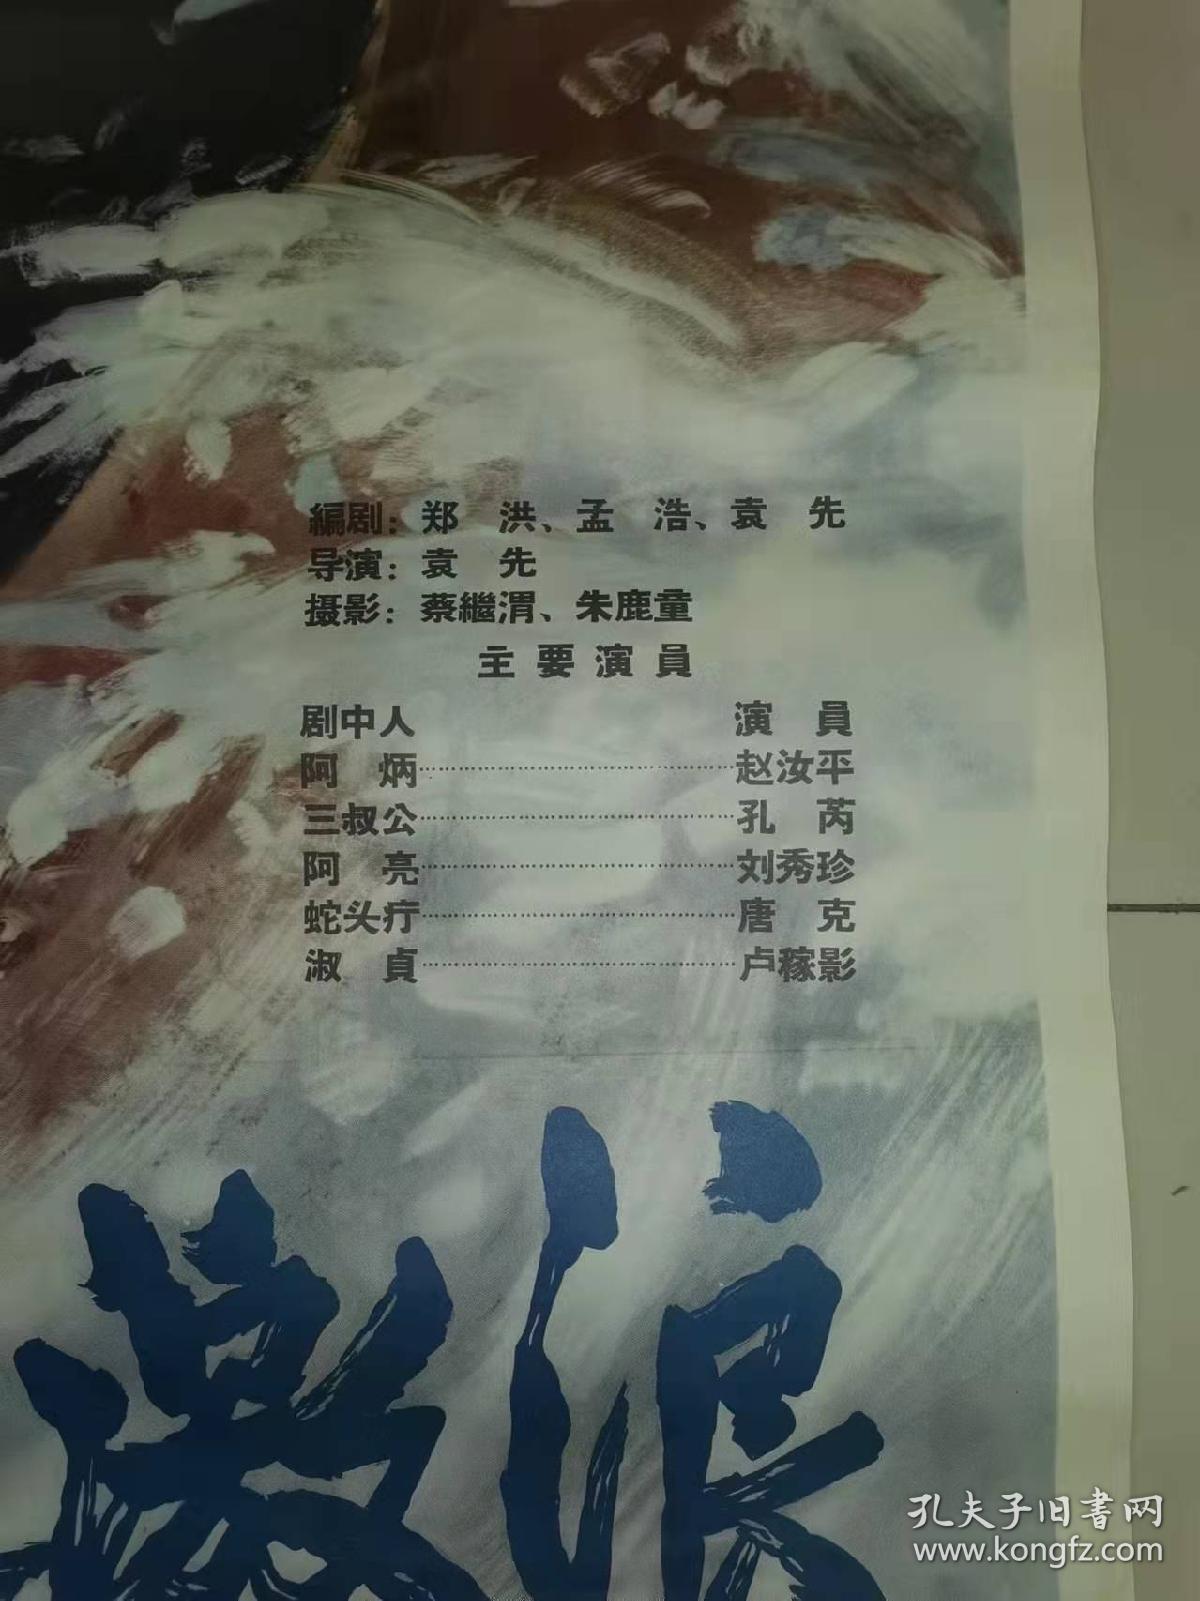 編剧：郑　洪、孟　浩、袁　先
导演：袁　先
摄影：蔡繼渭、朱鹿童
主要演員
剧中人　演員
阿　炳……赵汝平
三叔公……孔　芮
阿　亮……刘秀珍
蛇头疔……唐　克
淑　貞……卢稼影
激浪
孔夫子旧書网
www.kongfz.com